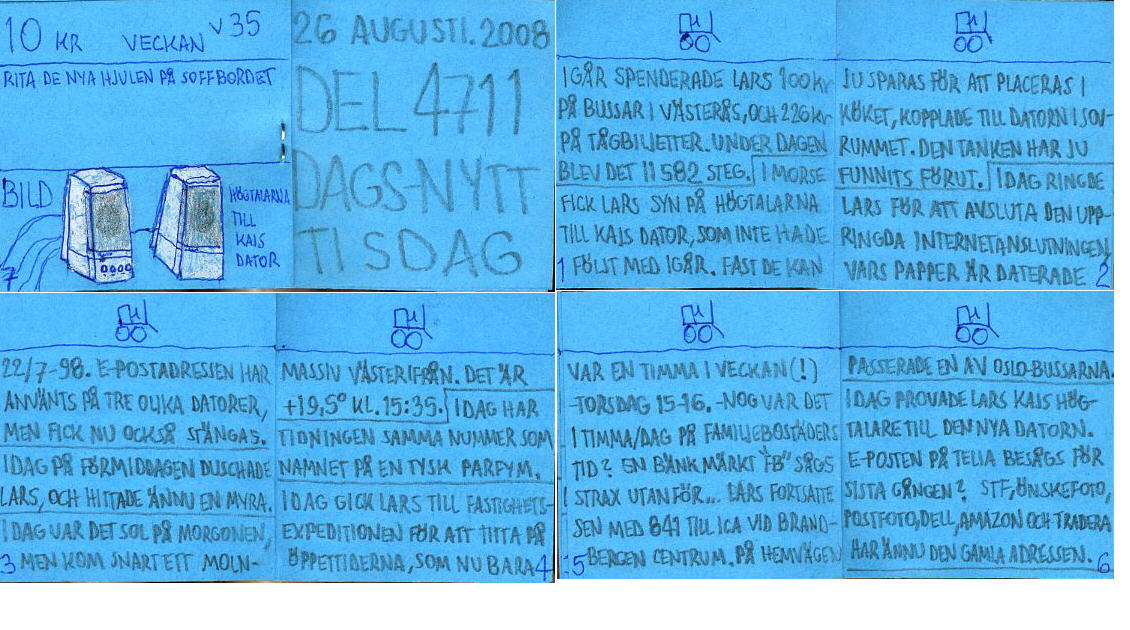 10 KR VECKAN V 35
RITA DE NYA HJULEN PÅ SOFFBORDET
BILD
HÖGTALARNA
TILL
KAIS
DATOR
7
26 AUGUSTI. 2008
DEL 4711
DAGS-NYTT
TISDAG
I GÅR SPENDERADE LARS 100 Kr
PÅ BUSSAR I VÄSTERÅS, OCH 226 Kr
PÅ TÅGBILJETTER. UNDER DAGEN
BLEV DET 11 582 STEG. I MORSE
FICK LARS SYN PÅ HÖGTALARNA
TILL KAIS DATOR, SOM INTE HADE
FÖLJT MED IGÅR. FAST DE KAN
1
JU SPARAS FÖR ATT PLACERAS I
KÖKET, KOPPLADE TILL DATORN I SOV-
RUMMET. DEN TANKEN HAR JU
FUNNITS FÖRUT. IDAG RINGDE
LARS FÖR ATT AVSLUTA DEN UPP-
RINGDA INTERNETANSLUTNINGEN,
VARS PAPPER ÄR DATERADE
2
22/7-98. E-POSTADRESSEN HAR
ANVÄNTS PÅ TRE OLIKA DATORER,
MEN FICK NU OCKSÅ STÄNGAS.
IDAG PÅ FÖRMIDDAGEN DUSCHADE
LARS, OCH HITTADE ÄNNU EN MYRA.
IDAG VAR DET SOL PÅ MORGONEN,
MEN KOM SNART ETT MOLN-
3
MASSIV VÄSTERIFRÅN. DET ÄR
+19,5° KL. 15:35. IDAG HAR
TIDNINGEN SAMMA NUMMER SOM
NAMNET PÅ EN TYSK PARFYM.
IDAG GICK LARS TILL FASTIGHETS-
EXPEDITIONEN FÖR ATT TITTA PÅ
ÖPPETTIDERNA, SOM NU BARA
4
VAR EN TIMMA I VECKAN(!)
-TORSDAG 15-16. -NOG VAR DET
1 TIMMA/DAG PÅ FAMILJEBOSTÄDERS
TID? EN BÄNK MÄRKT "FB" SÅGS
STRAX UTANFÖR... LARS FORTSATTE
SEN MED 841 TILL ICA VID BRAND-
BERGEN CENTRUM. PÅ HEMVÄGEN
5
PASSERADE EN AV OSLO-BUSSARNA.
IDAG PROVADE LARS KAIS HÖG-
TALARE TILL DEN NYA DATORN.
E-POSTEN PÅ TELIA BESÖGS FÖR
SISTA GÅNGEN? STF, ÖNSKEFOTO,
POSTFOTO, DELL, AMAZON OCH TRADERA
HAR ÄNNU DEN GAMLA ADRESSEN.
6